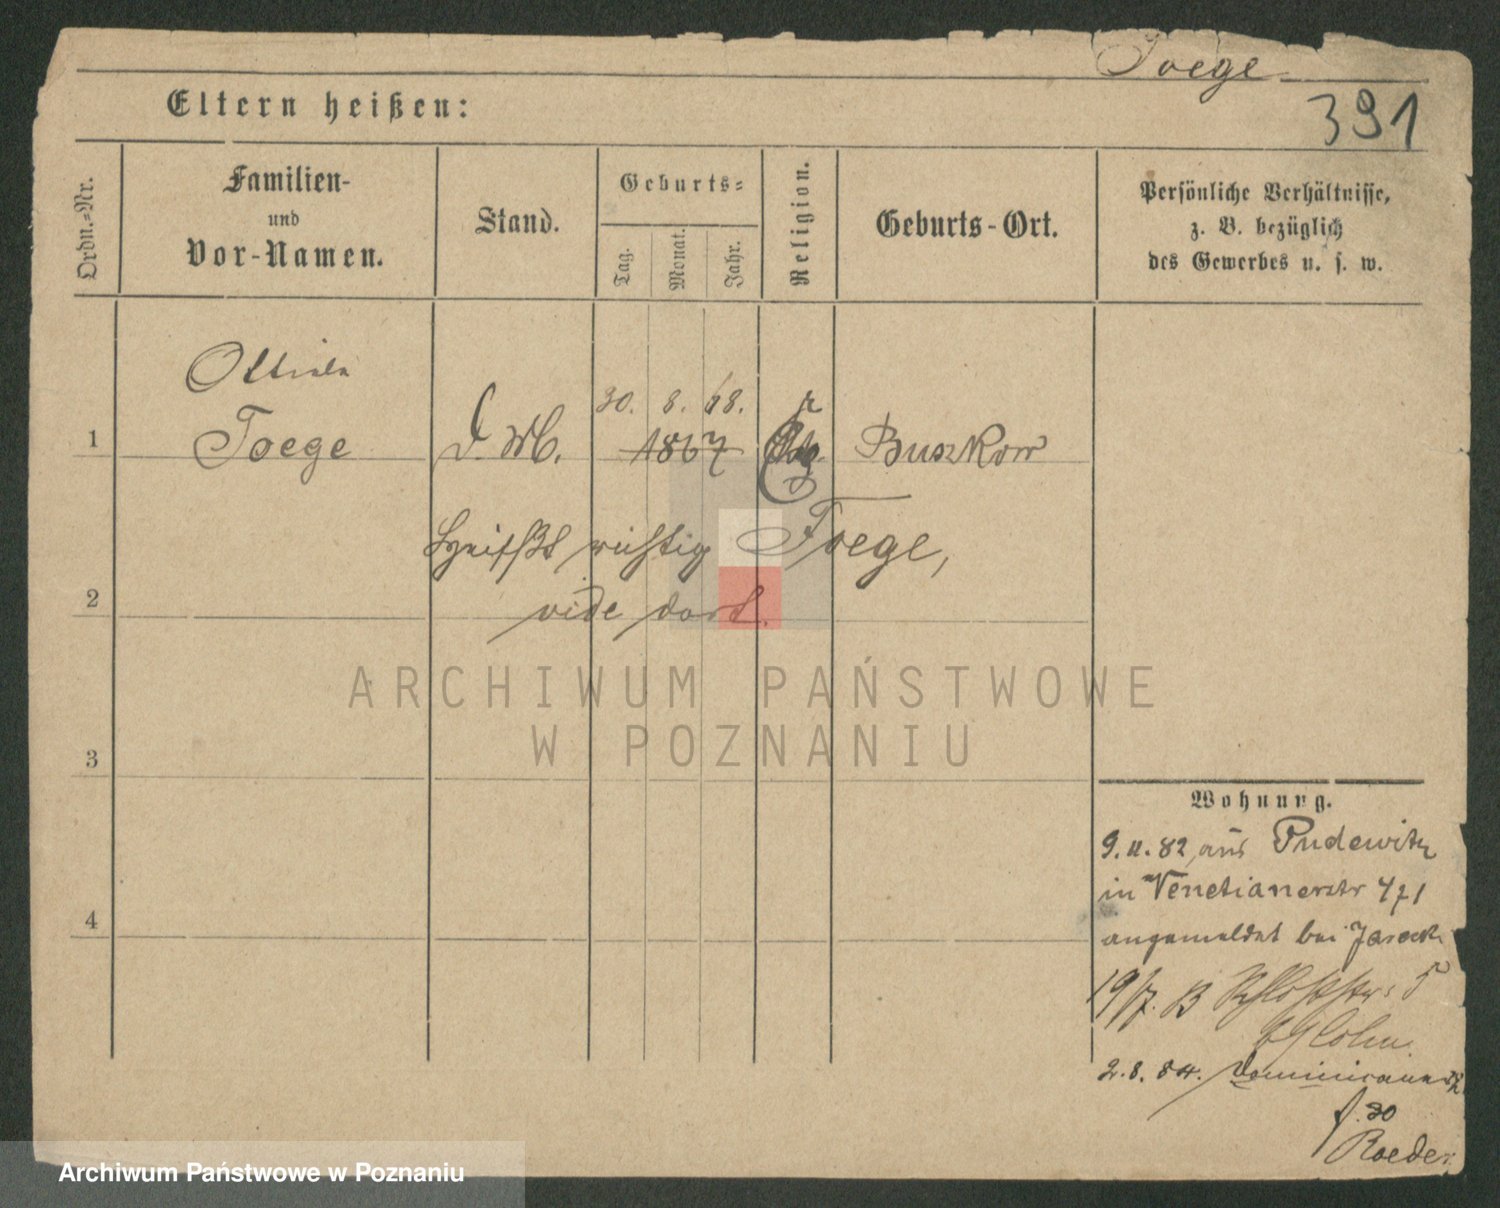 Toege
Eltern heißen:
391
Ordn.-Nr.
Familien-
und
Vor-Namen.
Stand.
Geburts-
Tag.
Monat.
Jahr.
Religion.
Geburts-Ort.
Persönliche Verhältnisse,
z. B. bezüglich
des Gewerbes u. s. w.
Ottilie
30. 8. 68.
1
Toege
D. M.
1867
Buszkow
Heißt richtig Foege,
2
vide dort.
ARCHIWUM PAŃSTWOWE
W POZNANIU
3
Wohnung.
9.11.82, aus Pudewitz
in Venetianerstr
4
angemeldet bei
19/7. Schloßstr: 5
Cohn.
2.8.84. Dominicaner
Roeder
Archiwum Państwowe w Poznaniu